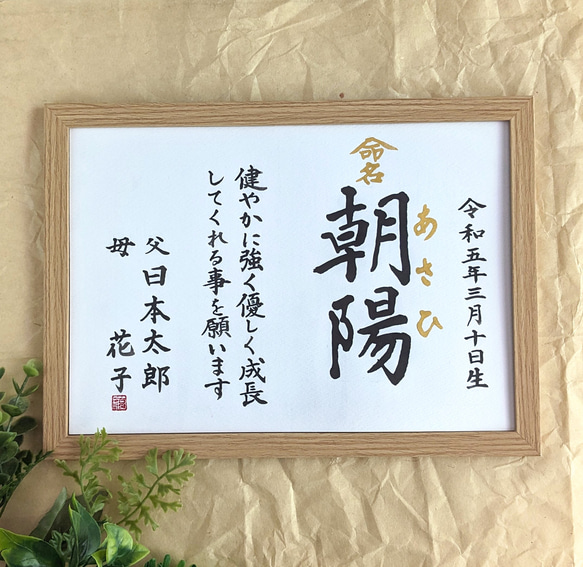 令和五年三月十日生
命名
あさひ
朝陽
健やかに強く優しく成長
してくれる事を願います
父日本太郎
母 花子